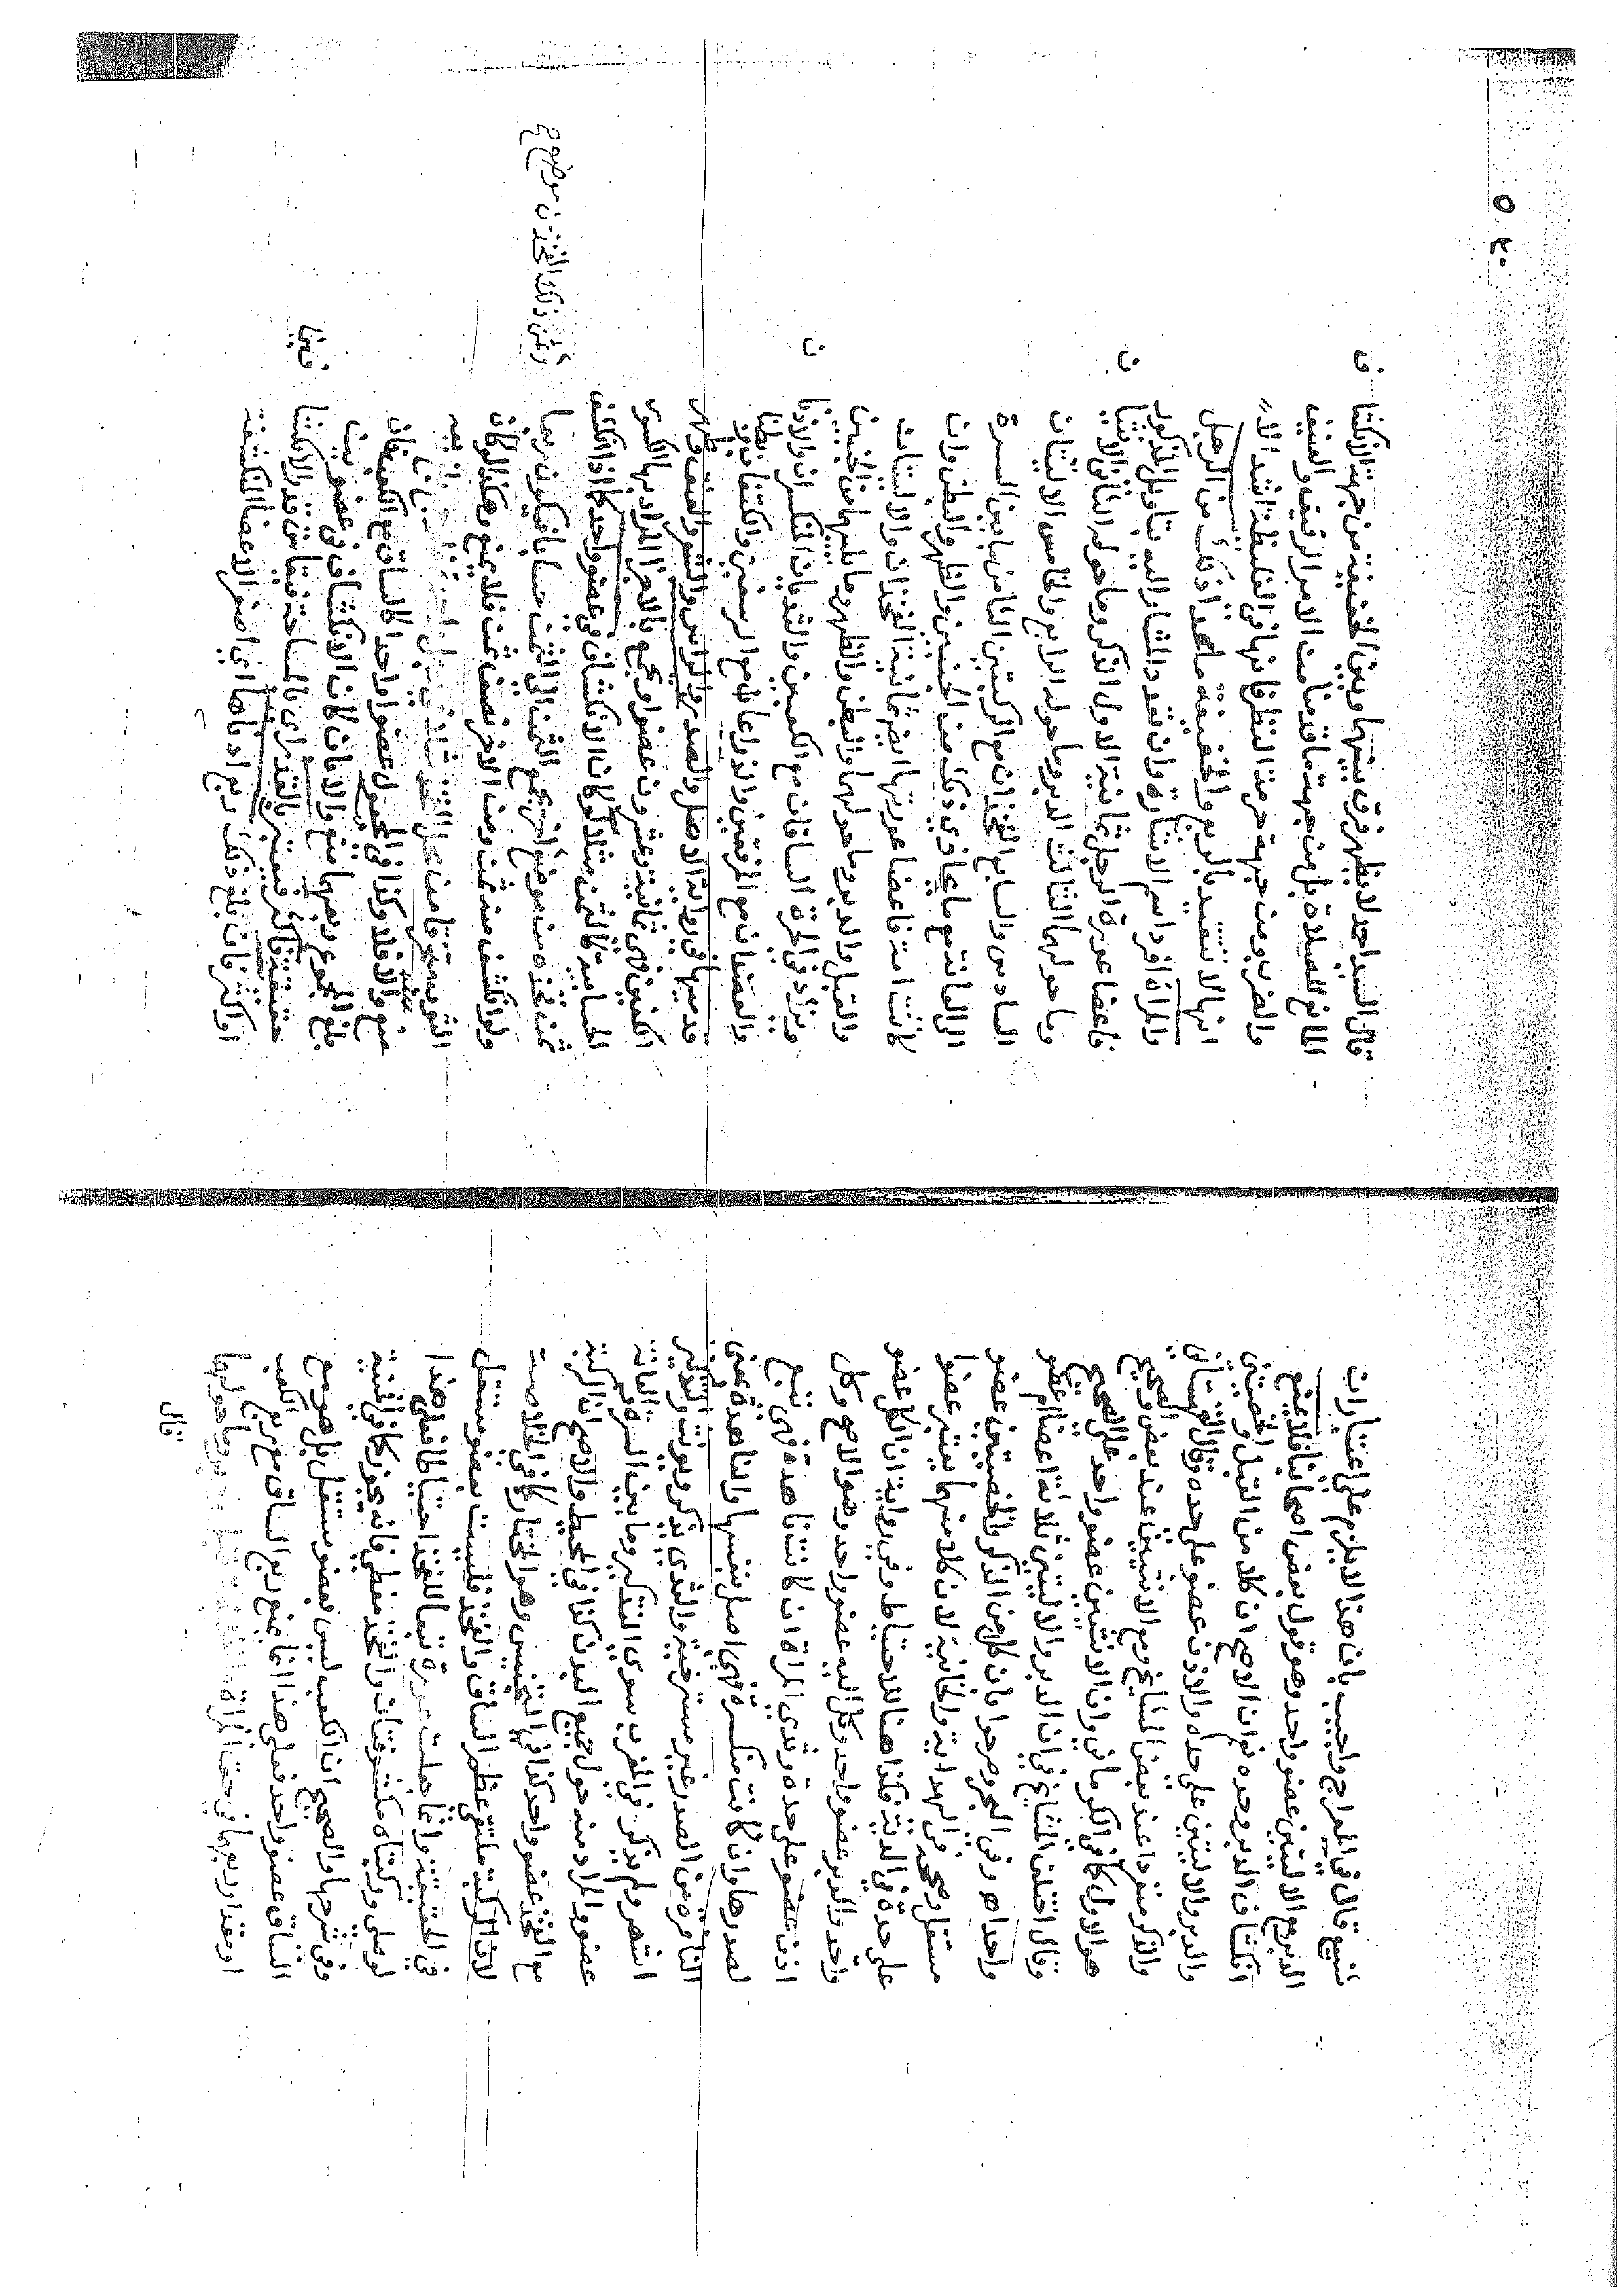 شنيع قال في المعراج واجيب بان هذا لا يلزم على اعتباران
الدبر مع الاليتين عضو واحد وهو قول بعض اصحابنا فلا يمنع
انكشاف الدبر وحده نعم ان الاصح ان كلا من القبل والخصيتين
والدبر والاليتين على حده والاذن عضو على حده وقال القهستاني
والذكر منفردا عند بعض المشايخ ومع الانثيين عند بعض والصحيح
هو الاول كما في الكرماني وان الانثيين عضو واحد على الصحيح
وقال اختلف المشايخ في ان الدبر والاليتين ثلاثة اعضا ام عضو
واحد اه وفي البحر وصرحوا بان كلا من الذكر والخصيتين عضو
مستقل وصححه في الهداية والخانية لان كلا منهما يعتبر عضوا
على حدة في الدية فكذا هنا للاحتياط وفي رواية ان الكل عضو
واحد والدبر عضو واحد وكل الية عضو واحد وهو الاصح وكل
اذن عضو على حدة وثدي المراة ان كانت ناهدة فهي تبع
لصدرها وان كانت منكسرة فهي اصل بنفسها والناهدة بمعنى
النافرة من الصدر غير مسترخية والثدي يذكر ويونث والتذكير
انتهى ولم يذكر في المغرب سوى التذكير وما بين السرة والعانة
عضو والمراد منه حول جميع البدن كذا في المحيط والاصح ان الركبة
مع الفخذ عضو واحد كذا في التجنيس وهو المختار كما في الخلاصة
لان الركبة ملتقى عظم الساق والفخذ فليست بعضو مستقل
في الحقيقة وانما جعلت عورة تبعا للفخذ احتياطا فعلى هذا
لو صلى وركبتاه مكشوفتان والفخذ مغطى فانه يجوز كما في المنية
وفي شرحها والصحيح ان الكعب ليس بعضو مستقل بل هو مع
الساق عضو واحد فعلى هذا انما يمنع ربع الساق مع ربع الكعب
او مقدار ربعهما في حق المراة وما حولهما
قال
قال السيد احمد لا يظهر فرق بينهما وبين الخفيفة من جهة الانكشا
المانع للصلاة بل من جهة ما قدمنا من الامر الرفيق والعنيف
والضرب ومن جهة حرمة النظر فانها في الغليظة اشد الا
انها لا تتقيد بالربع والخفيفة ما عدا ذلك من الرجل
والمراة افرد اسم الاشارة وان تعدد المشار اليه بتاويل المذكور
فاعضا عورة الرجل ثمانية الاول الذكر وما حوله الثاني الانثيا
وما حولهما الثالث الدبر وما حوله الرابع والخامس الاليتان
السادس والسابع الفخذان مع الركبتين الثامن ما بين السرة
الى العانة مع ما يحاذي ذلك من الجنبين والظهر والبطن وان
كانت امة فاعضا عورتها ايضا ثمانية الفخذان والاليتان
والقبل والدبر وما حولهما والبطن والظهر وما يليهما من الجنبين
ويزاد في الحرة الساقان مع الكعبين والثديان المنكسران والاذنا
والعضدان مع المرفقين والذراعان مع الرسغين والكتفان وبطنا
قدميها في رواية الاصل والصدر والراس والشعر والعنق وظهر
الكفين فهي ثمانية وعشرون عضوا ويجمع بالاجزا المراد بها الكسور
الحسابية كالثمن مثلا لو كان الانكشاف في عضو واحد كما اذا انكشف
ثمن فخذه من موضع اخر يجمع الثمن الى الثمن حسابا فيكون ربعا
ولو انكشف منه ثمن ومن الاخر نصف ثمن فلا يمنع وهكذا لو كان
منع والا فلا وكذا في المحمول عضوا واحدا كالساق مع الكعب فان
بلغ المجموع ربعهما منع والا بان كان الانكشاف في عضوين
فبالقدر اي بالمساحة فيقاس قدر الانكشا
اوكثر فان بلغ ذلك ربع ادناها اي اصغر الاعضا المنكشفة